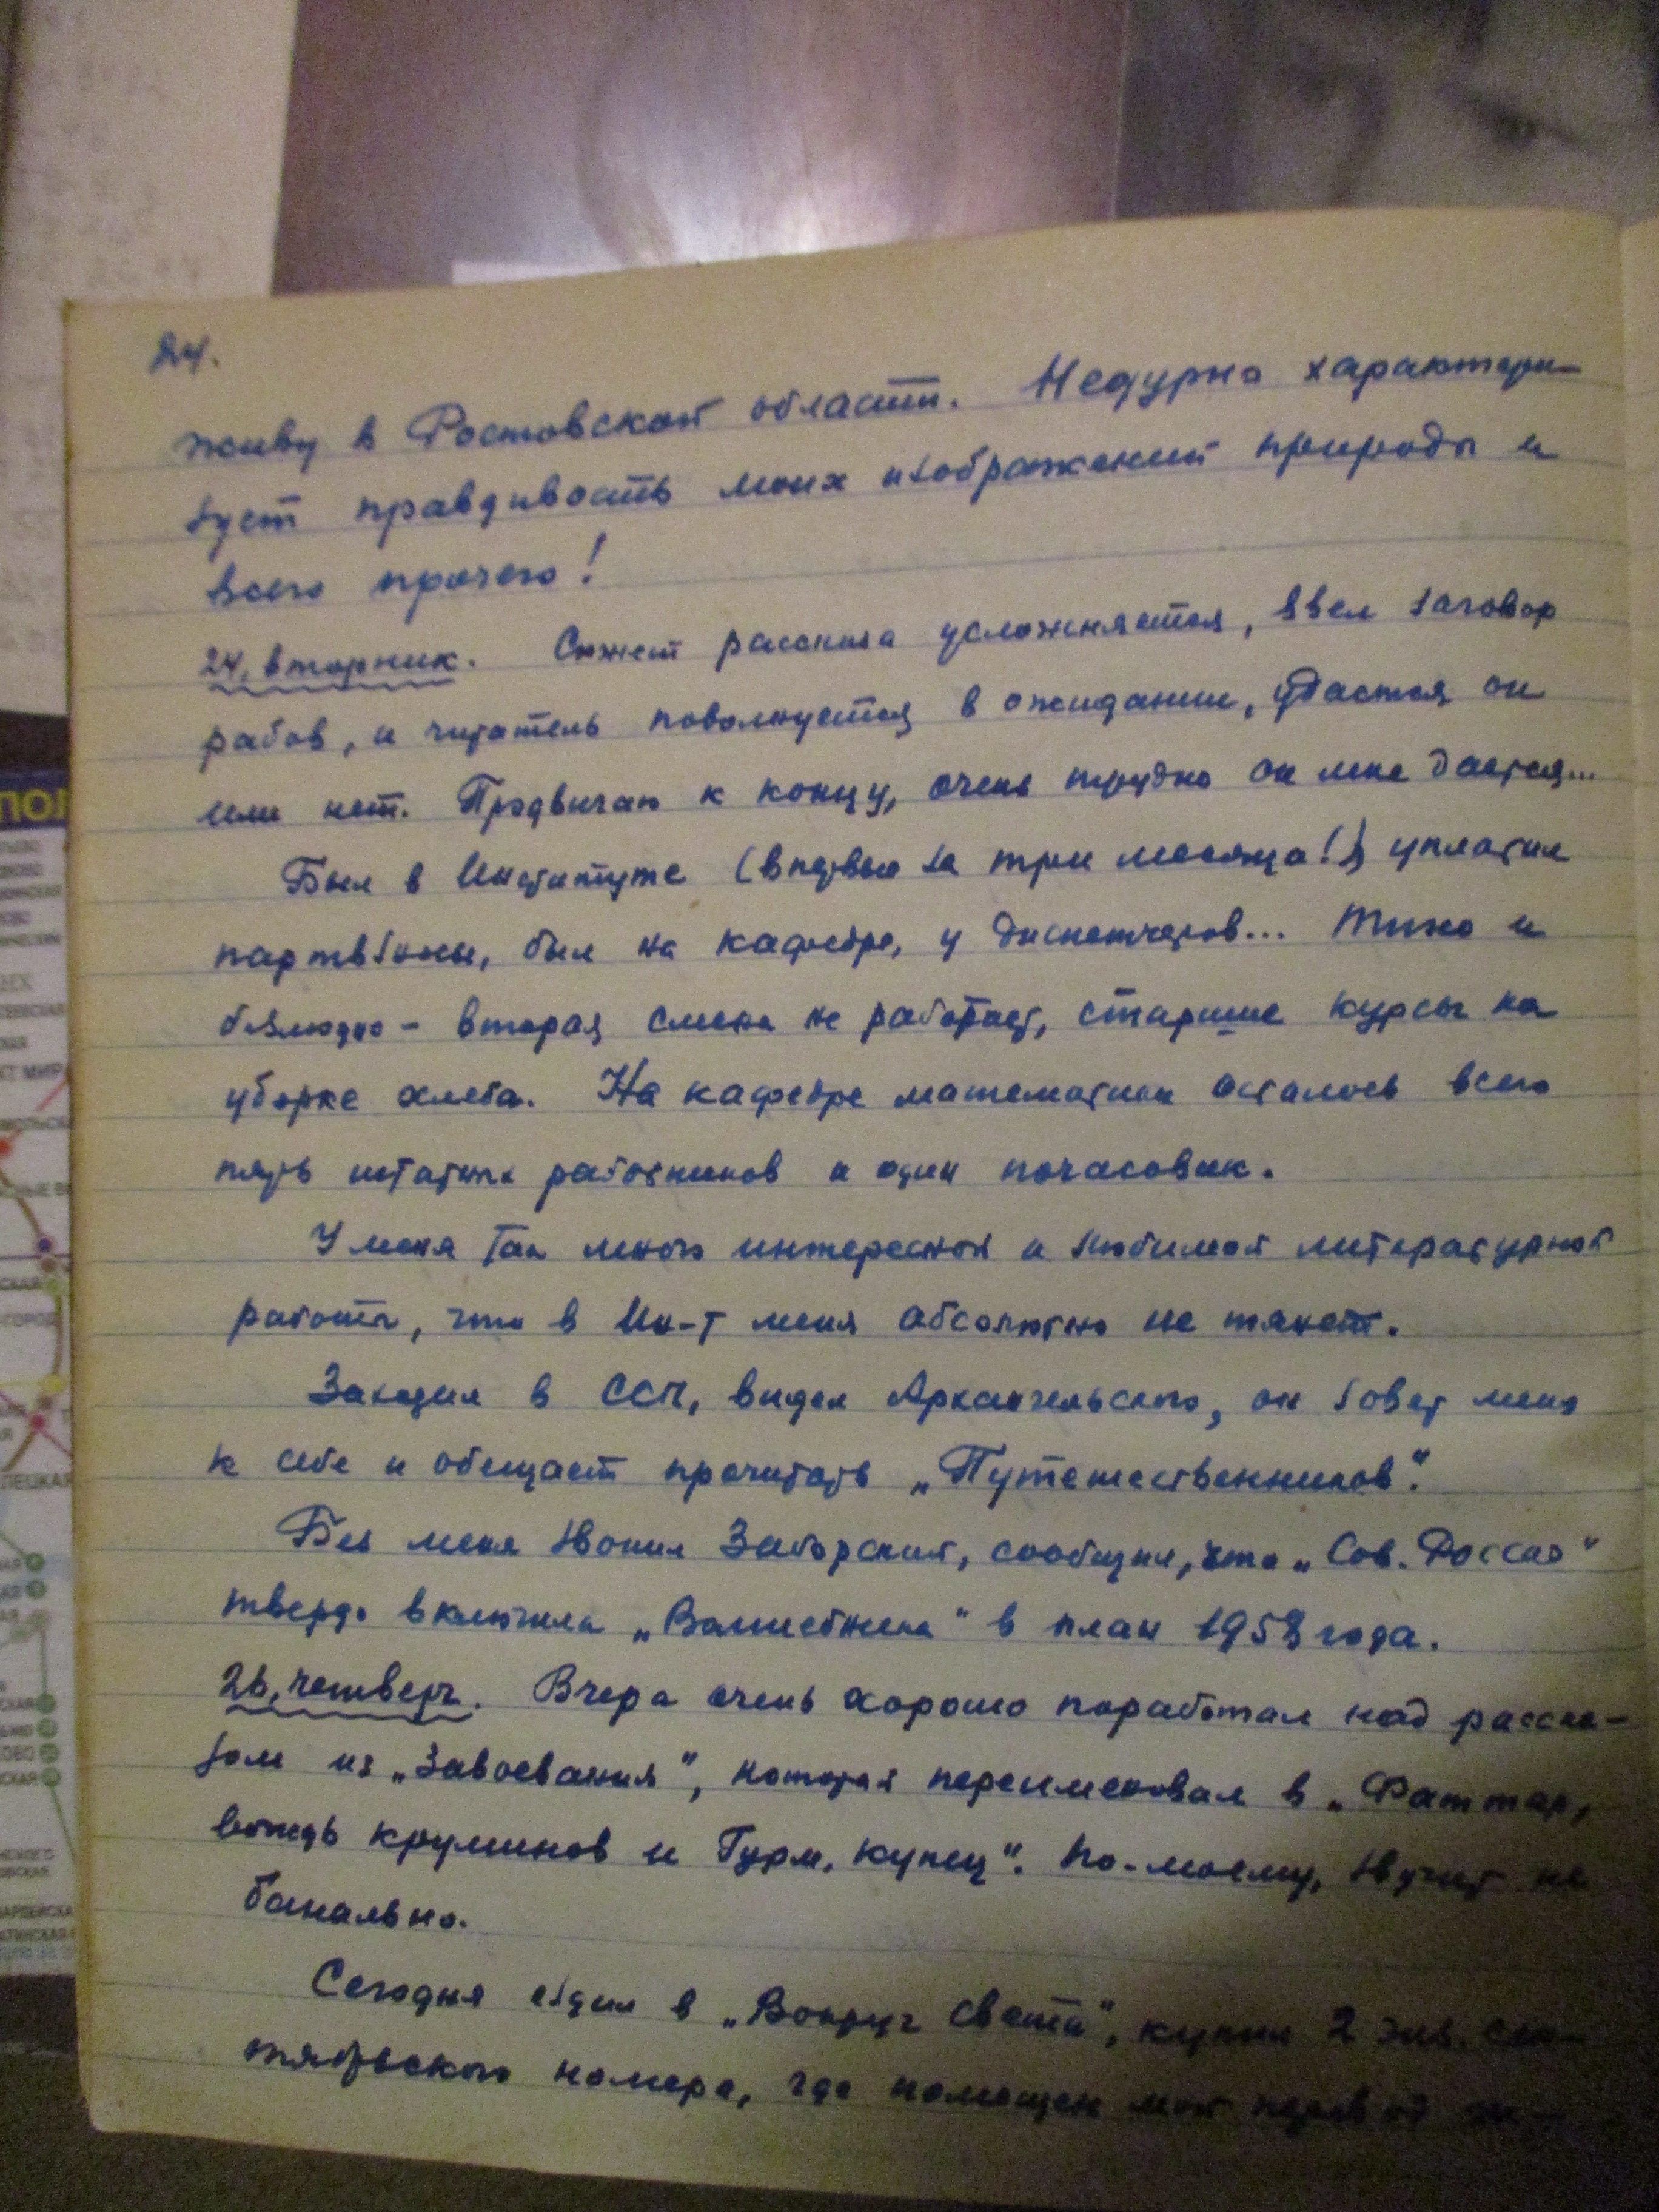 24.
живу в Ростовской области. Недурно характери-
зует правдивость моих изображений природы и
всего прочего!
24, вторник. Сюжет рассказа усложняется, ввел заговор
рабов, и читатель поволнуется в ожидании, удастся он
или нет. Продвигаю к концу, очень трудно он мне дается...
Был в Институте (впервые за три месяца!), уплатил
партвзносы, был на кафедре, у диспетчеров... Тихо и
безлюдно - вторая смена не работает, старшие курсы на
уборке хлеба. На кафедре математики осталось всего
пять штатных работников и один почасовик.
У меня так много интересной и любимой литературной
работы, что в Ин-т меня абсолютно не тянет.
Заходил в ССП, видел Архангельского, он зовет меня
к себе и обещает прочитать „Путешественников".
Без меня звонил Заборский, сообщил, что „Сов. Россия"
твердо включила „Волшебника" в план 1958 года.
26, четверг. Вчера очень хорошо поработал над расска-
зом из „Завоевания", который переименовал в „Фаттар,
вождь круминов и Гурм, купец". По-моему, звучит не
банально.
Сегодня ездил в „Вокруг Света", купил 2 экз. сен-
тябрьского номера, где помещен мой первый
ПОЛ
КТ МИР
ПЕЦКАЯ
ГОРОД